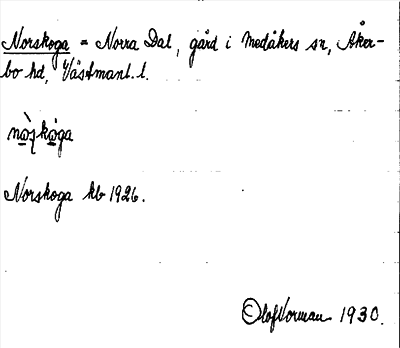 Norskoga = Norra Dal, gård i Medåkers sn, Åker-
bo hd, Västmanl. l.
Norskoga kb 1926.
Olof Norman 1930.